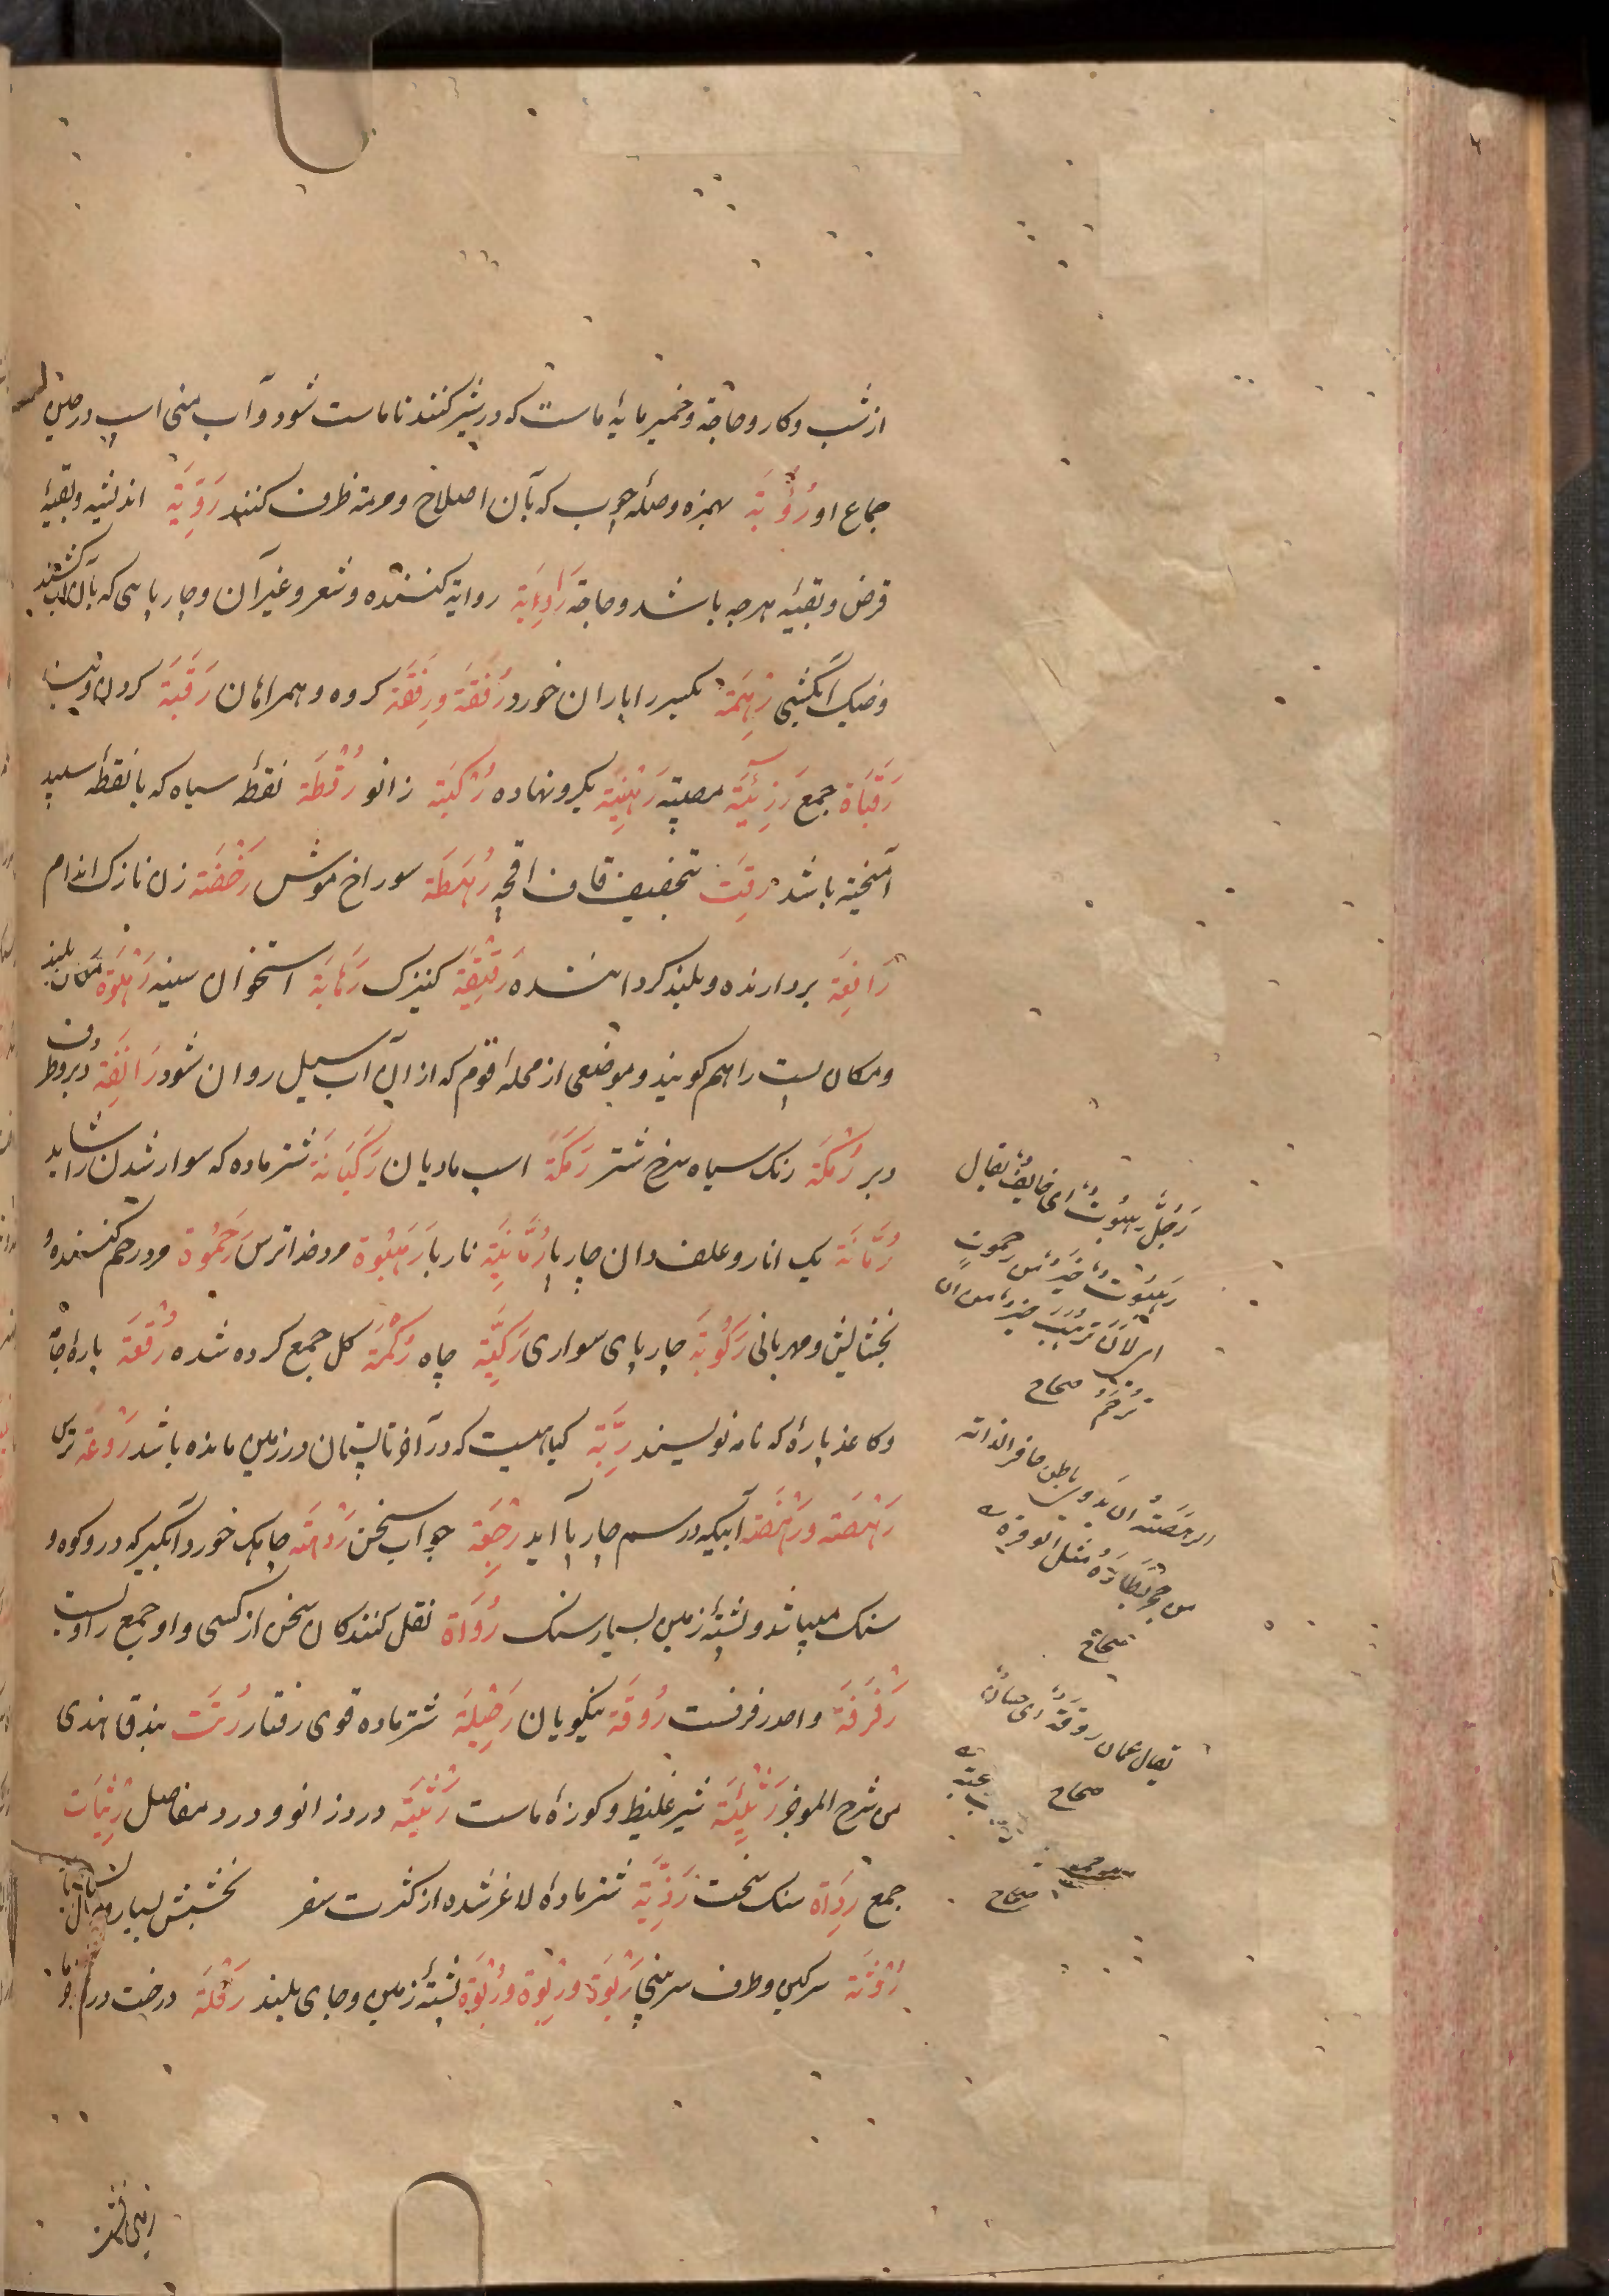 از شب و کار و حاجة و خمیر مایهٔ ماست که در شیر کنند تا ماست شود و آب منی اسپ در حین
جماع او رُؤْبَة بهمزه وصلهٔ چوب که بآن اصلاح و مرمة ظرف کنند رَوِیَّة اندیشه و بقیهٔ
قرض و بقیهٔ هرچه باشد و حاجة رَاوِیَة روایة کننده و شعر و غیر آن و چارپایی که بآن آب کشند
و ضیک آبکشی رِهْمَة یکسر را باران خورد رُفْقَة و رِفْقَة کروه و همراهان رَقَبَة کردن و بند
رَقَبَاة جمع رَزِیَّة مصیبة رَهِیْنَة بکرو نهاده رُکْبَة زانو رُقْطَة نقطهٔ سیاه که با نقطهٔ سپید
آمیخته باشد رِقَت بتخفیف قاف اقچه رُهَطَة سوراخ موش رَخْصَة زن نازک اندام
رَافِعَة بردارنده و بلند کرداننده رَقِیْقَة کنیزک رَهَابَة استخوان سینه رَهْوَة مکان بلند
و مکان پست را هم کویند و موضعی از محلهٔ قوم که از آن آب سیل روان شود رَانِفَة دبر و طرف
دبر رُمْکَة رنک سیاه سرخ شتر رَمَکَة اسپ مادیان رَکْبَانَة شتر ماده که سوار شدن را شاید
رُمَّانَة یک انار و علف دان چارپا رُمَّانِیَّة ناربا رَهَبُوة مرد خدا ترس رَحَمُوة مرد رحم کننده و
بخشایش و مهربانی رَکُوْبَة چارپای سواری رَکِیَّة چاه رُکْمَة کل جمع کرده شده رُقْعَة پارهٔ جامه
و کاغذ پارهٔ که نامه نویسند رِبَّة کیاهیست که در آخر تابستان در زمین مانده باشد رَوْعَة ترس
رَهْصَة و رَهَصَة آبیکه در سم چارپا آید رَجِعَة جواب سخن رَدْهَة چاهک خورد آبکیر که در کوه و
سنک میباشد و پشتهٔ زمین بسیار سنک رُوَاة نقل کنندکان سخن از کسی و او جمع راویست
رَفْرَفَة واحد رفرفست رُوْقَة نیکویان رَحِیْلَة شتر ماده قوی رفتار رِتَت بندق هندی
من شرح الموجز رَثِیْئَة شیر غلیظ و کوزهٔ ماست رَثْیَة درد زانو و درد مفاصل رَثَیَات
جمع رِدَاة سنک سخت رَذِیَّة شتر مادهٔ لاغر شده از کثرت سفر بخشش بسیار
رَوْثَة سرکین و طرف سر بینی رَبْوَة و رِبْوَة و رُبْوَة پشتهٔ زمین و جای بلند رَقْلَة درخت
رَجُلٌ رَهَبُوتٌ ای خایف یقال
رَهَبُوتٌ خَیْرٌ من رَحَمُوتٍ
ای لَاَنْ تُرْهَبَ خیرٌ من ان
تُرْحَمَ صحاح
الرهصة ان یدوی باطن حافر الدابة
من حجر تَطَأُهُ مثل الوقرة
صحاح
یقال غلمان روقة ای حسان
صحاح
صحاح